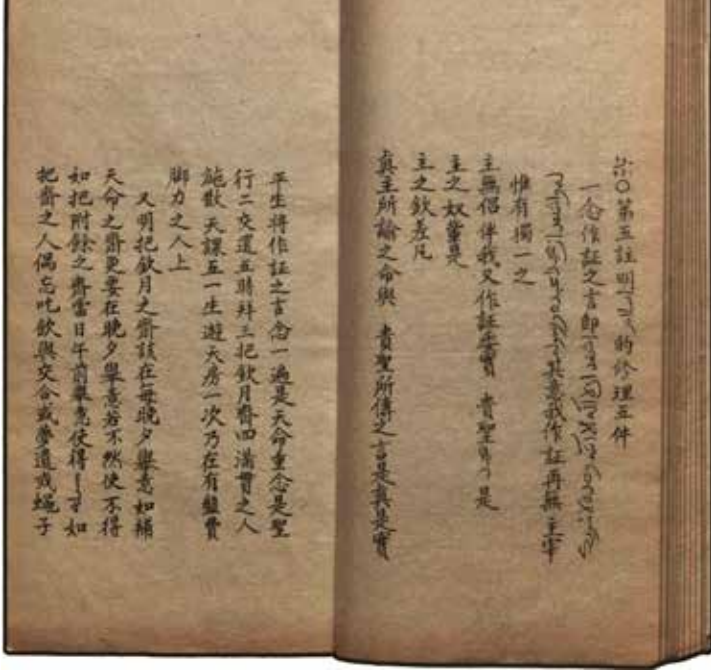 〇第五註明 的修理五件
一念作証之言即
其意我作証再無主宰
惟有獨一之
主無侣伴我又作証委實 貴聖 是
主之奴僕是
主之欽差凡
真主所諭之命與 貴聖所傳之言是真是實
平生將作証之言念一遍是天命重念是聖
行二交還五時拜三把欽月齋四滿貫之人
施散天課五一生遊天房一次乃在有盤費
脚力之人上
又明把欽月之齋該在每晚夕舉意如補
天命之齋更要在晚夕舉意若不然使不得
如把附餘之齋當日午前舉意使得 如
把齋之人偶忘吃飲與交合或夢遺或蠅子